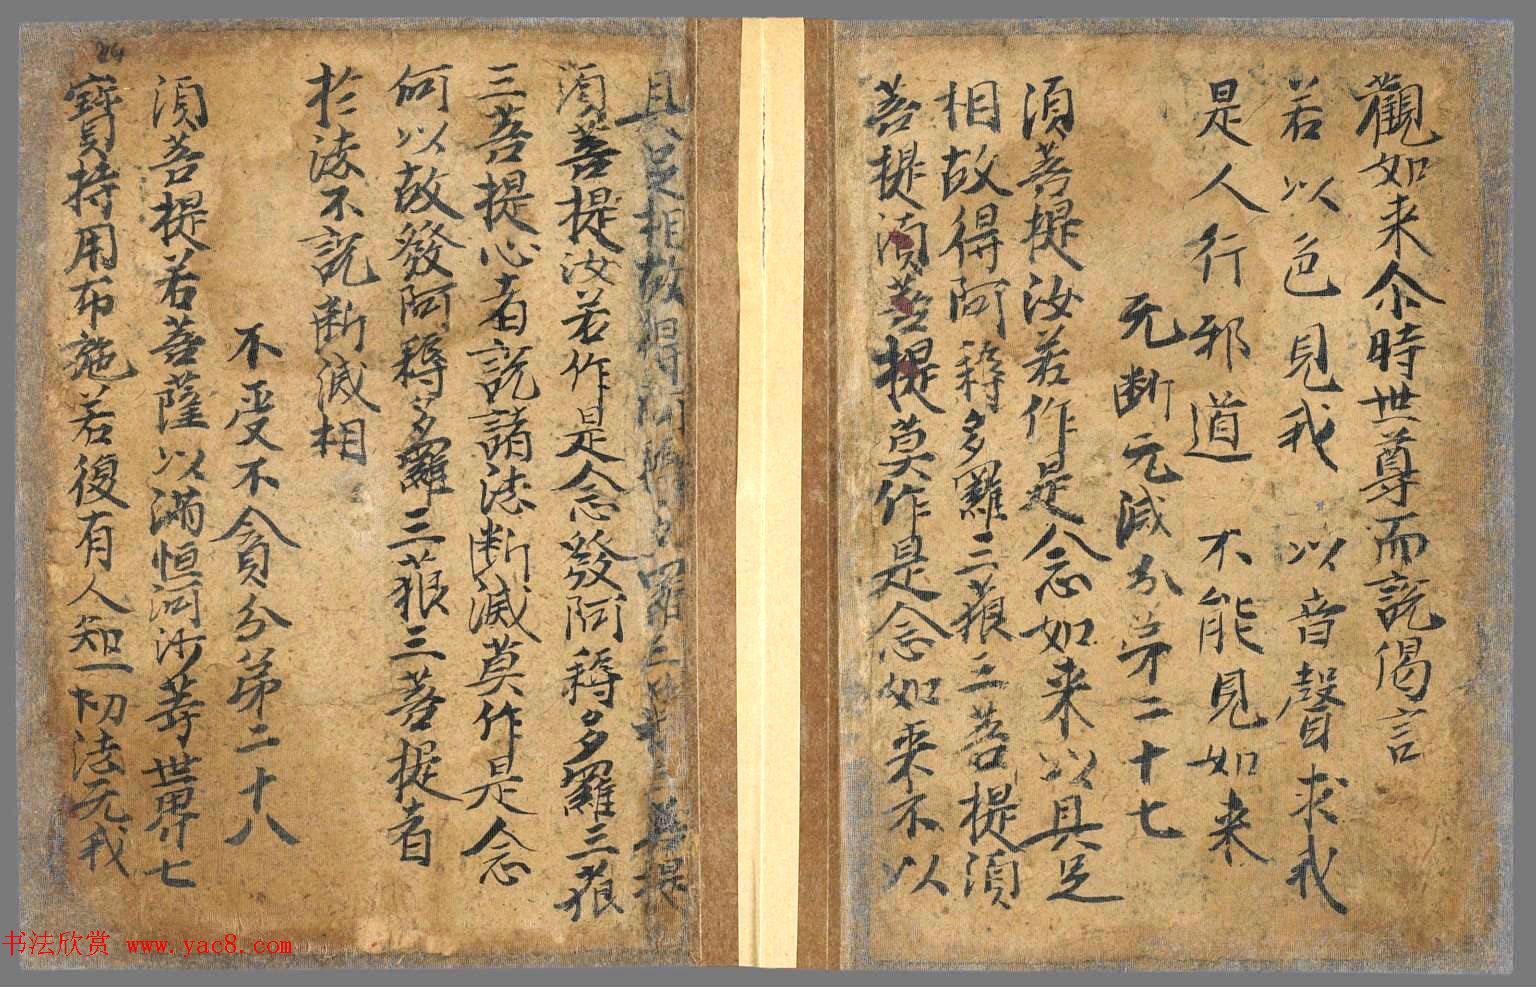 觀如来尒時世尊而說偈言
若以色見我 以音聲求我
是人行邪道 不能見如来
无断无滅分弟二十七
湏菩提汝若作是念如来以具足
相故得阿耨多羅三藐三菩提湏
菩提湏菩提莫作是念如来不以
具足相故得阿耨多羅三藐三菩提
湏菩提汝若作是念發阿耨多羅三藐
三菩提心者說諸法断滅莫作是念
何以故發阿耨多羅三藐三菩提者
扵法不說断滅相
不受不貪分弟二十八
湏菩提若菩薩以滿恒河沙等世界七
寶持用布施若復有人知一切法无我
24
书法欣赏 www.yac8.com